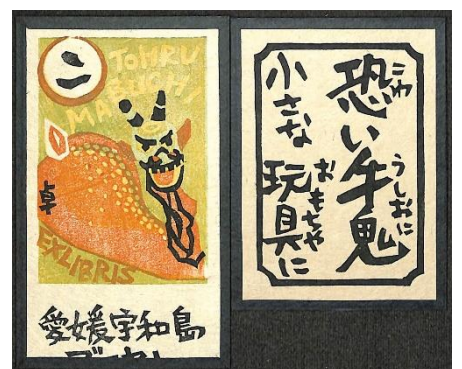 こ
TOHRU
MABUCHI
卓
EXLIBRIS
愛媛宇和島
恐い牛鬼
こわ
うしおに
小さな玩具に
おもちゃ